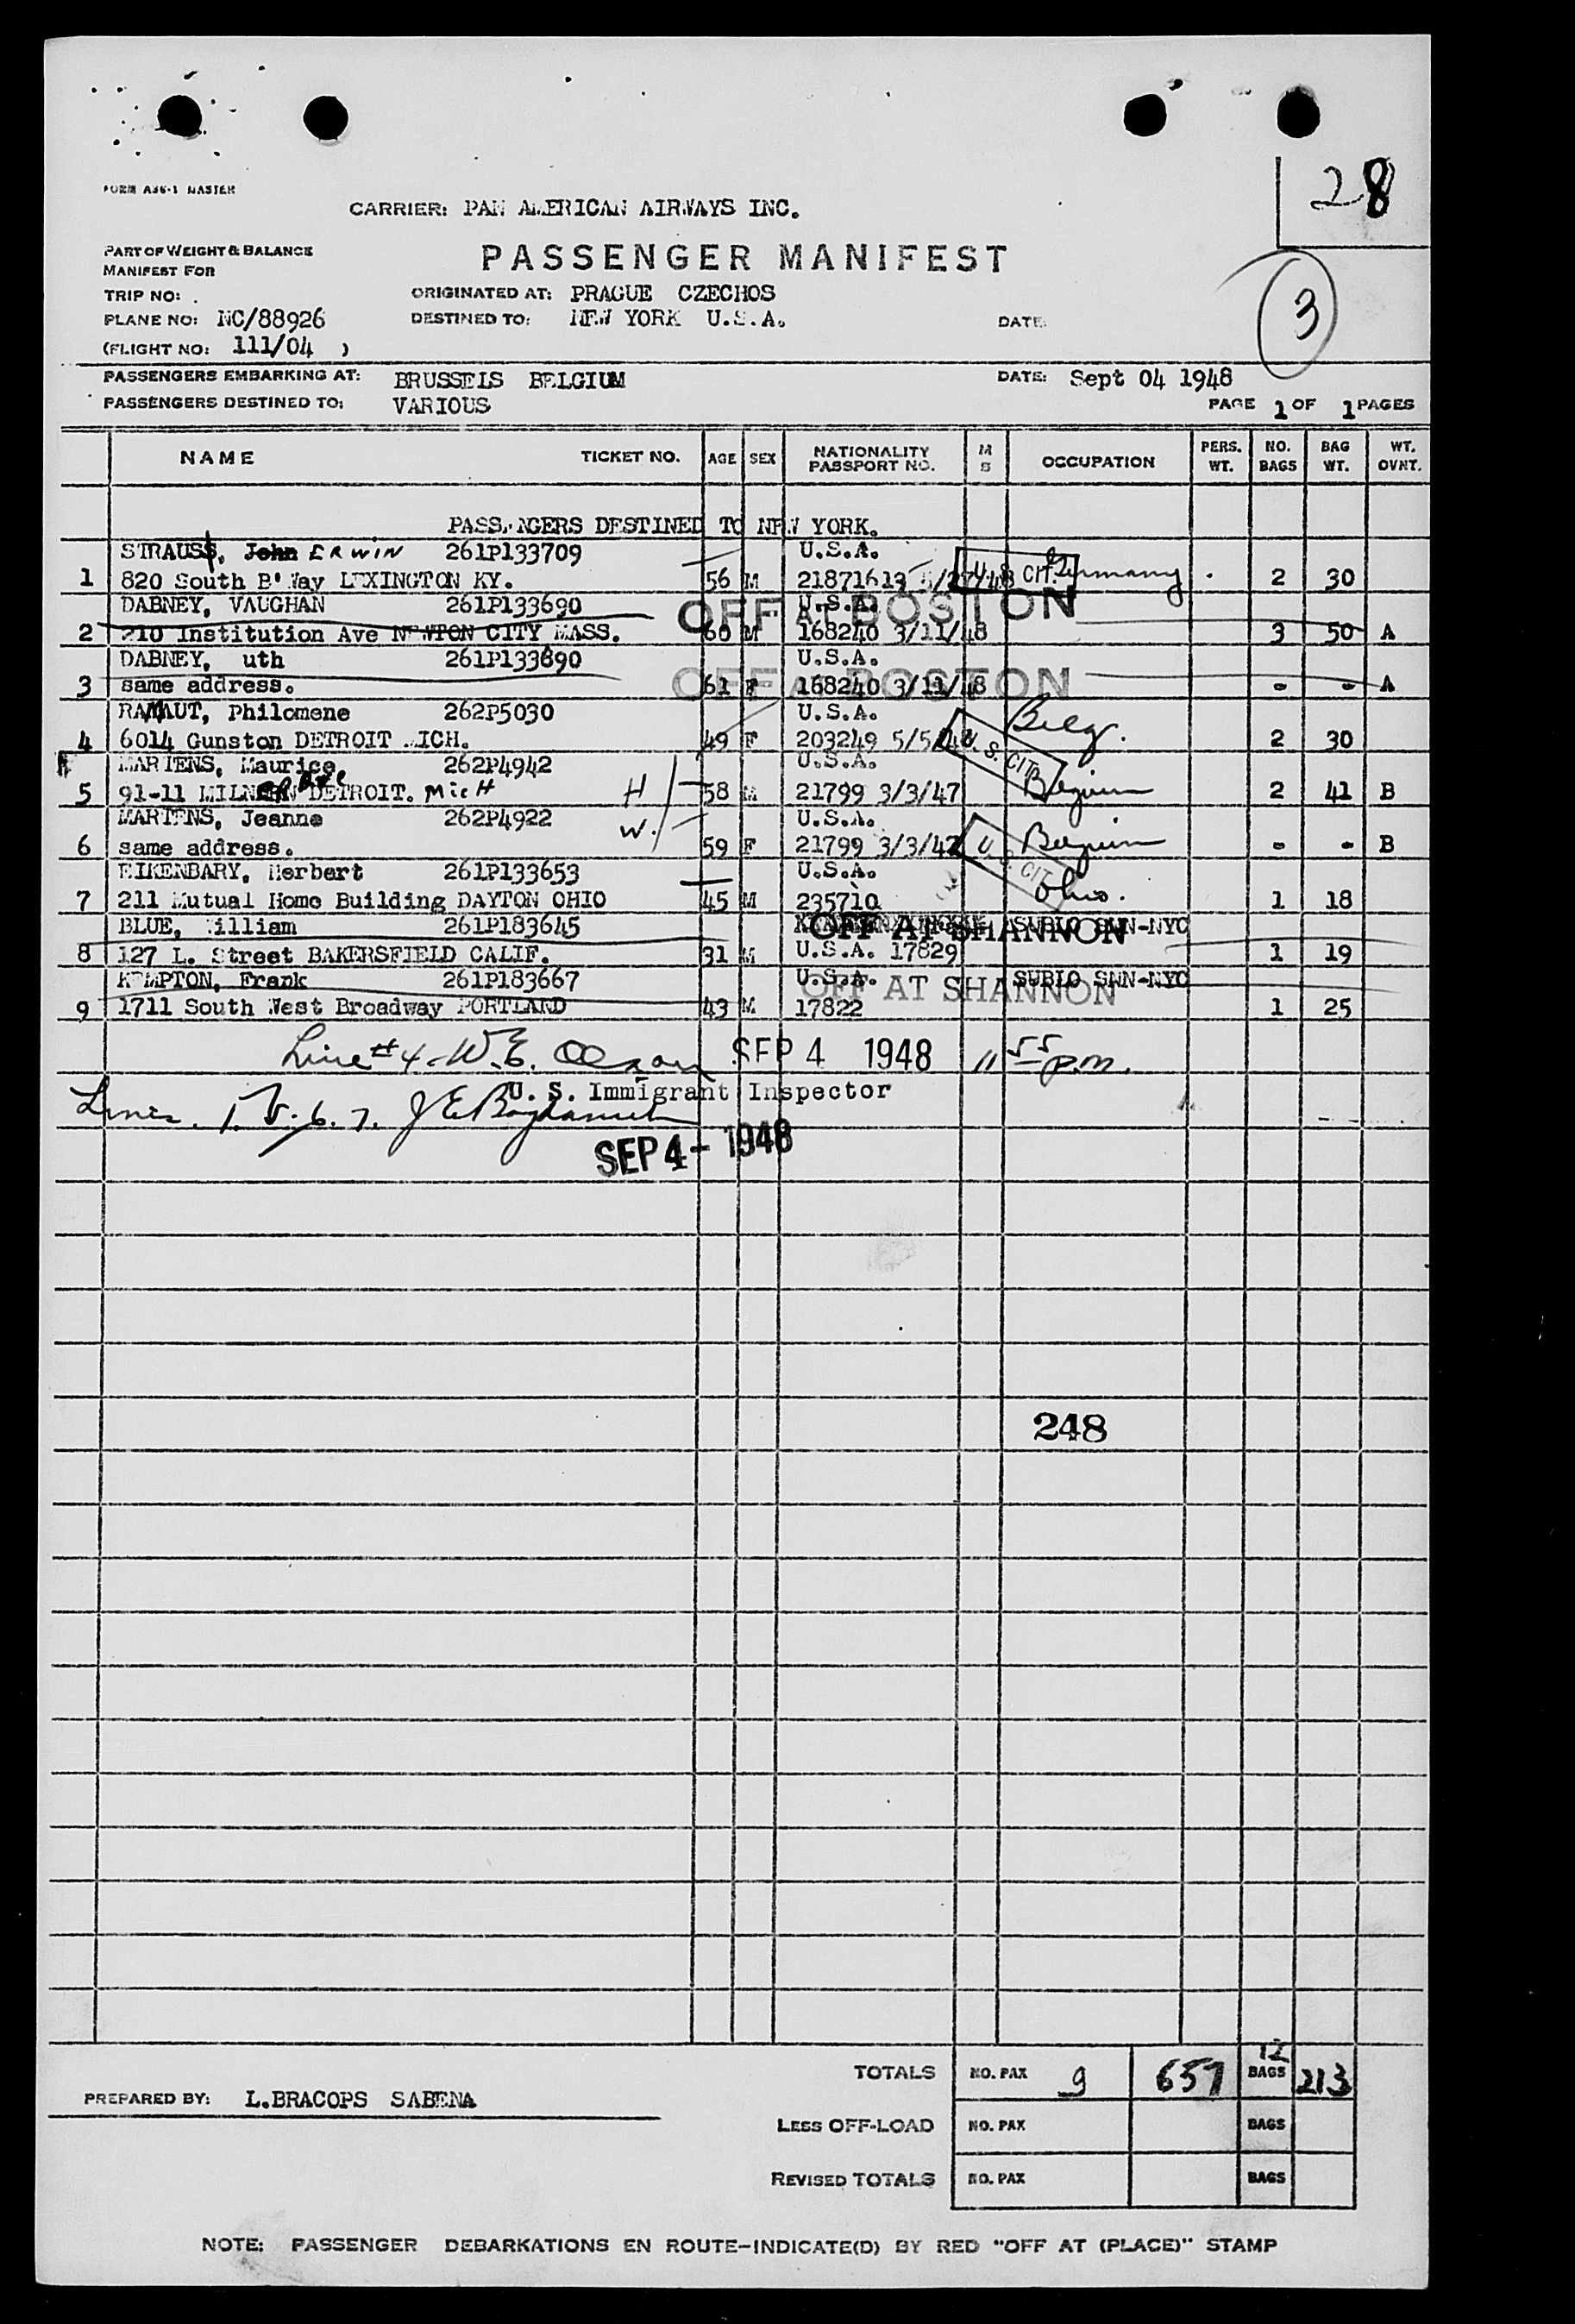 28
FORM A36-1 MASTER
CARRIER: PAN AMERICAN AIRWAYS INC.
PART OF WEIGHT & BALANCE
MANIFEST FOR
PASSENGER MANIFEST
3
TRIP NO:
ORIGINATED AT: PRAGUE CZECHOS
PLANE NO: NC/88926
DESTINED TO: NEW YORK U.S.A.
DATE:
(FLIGHT NO: 111/04 )
PASSENGERS EMBARKING AT: BRUSSELS BELGIUM
DATE: Sept 04 1948
PASSENGERS DESTINED TO: VARIOUS
PAGE 1 OF 1 PAGES
NAME TICKET NO. AGE SEX NATIONALITY PASSPORT NO. M S OCCUPATION PERS. WT. NO. BAGS BAG WT. WT. OVNT.
PASSENGERS DESTINED TO NEW YORK.
STRAUSS, John ERWIN 261P133709 U.S.A.
1 820 South B'Way LEXINGTON KY. 56 M 21871613 5/27/48 U.S. CIT. Germany 2 30
DABNEY, VAUGHAN 261P133690 U.S.A.
OFF AT BOSTON
2 210 Institution Ave NEWTON CITY MASS. 60 M 168240 3/11/48 3 50 A
DABNEY, uth 261P133690 U.S.A.
OFF AT BOSTON
3 same address. 61 F 168240 3/11/48 - - A
RAMAUT, Philomene 262P5030 U.S.A. Belg.
4 6014 Gunston DETROIT MICH. 49 F 203249 5/5/48 2 30
MARTENS, Maurice 262P4942 U.S.A. U.S. CIT.
5 91-11 DETROIT. MicH H 58 M 21799 3/3/47 Belgium 2 41 B
MARTENS, Jeanne 262P4922 W. U.S.A.
6 same address. 59 F 21799 3/3/47 U.S. CIT. Belgium - - B
EIKENBARY, Herbert 261P133653 U.S.A.
7 211 Mutual Home Building DAYTON OHIO 45 M 235710 Ohio. 1 18
BLUE, William 261P183645 OFF AT SHANNON SUBLO SNN-NYC
8 127 L. Street BAKERSFIELD CALIF. 31 M U.S.A. 17829 1 19
KEMPTON, Frank 261P183667 U.S.A. SUBLO SNN-NYC
OFF AT SHANNON
9 1711 South West Broadway PORTLAND 43 M 17822 1 25
Line #4. W.E. Olson SEP 4 1948 11 55 p.m.
U. S. Immigrant Inspector
Lines. 1. 5. 6. 7.
SEP 4 - 1948
248
TOTALS NO. PAX 9 657 12 BAGS 213
PREPARED BY: L.BRACOPS SABENA
LESS OFF-LOAD NO. PAX BAGS
REVISED TOTALS NO. PAX BAGS
NOTE: PASSENGER DEBARKATIONS EN ROUTE-INDICATE(D) BY RED "OFF AT (PLACE)" STAMP